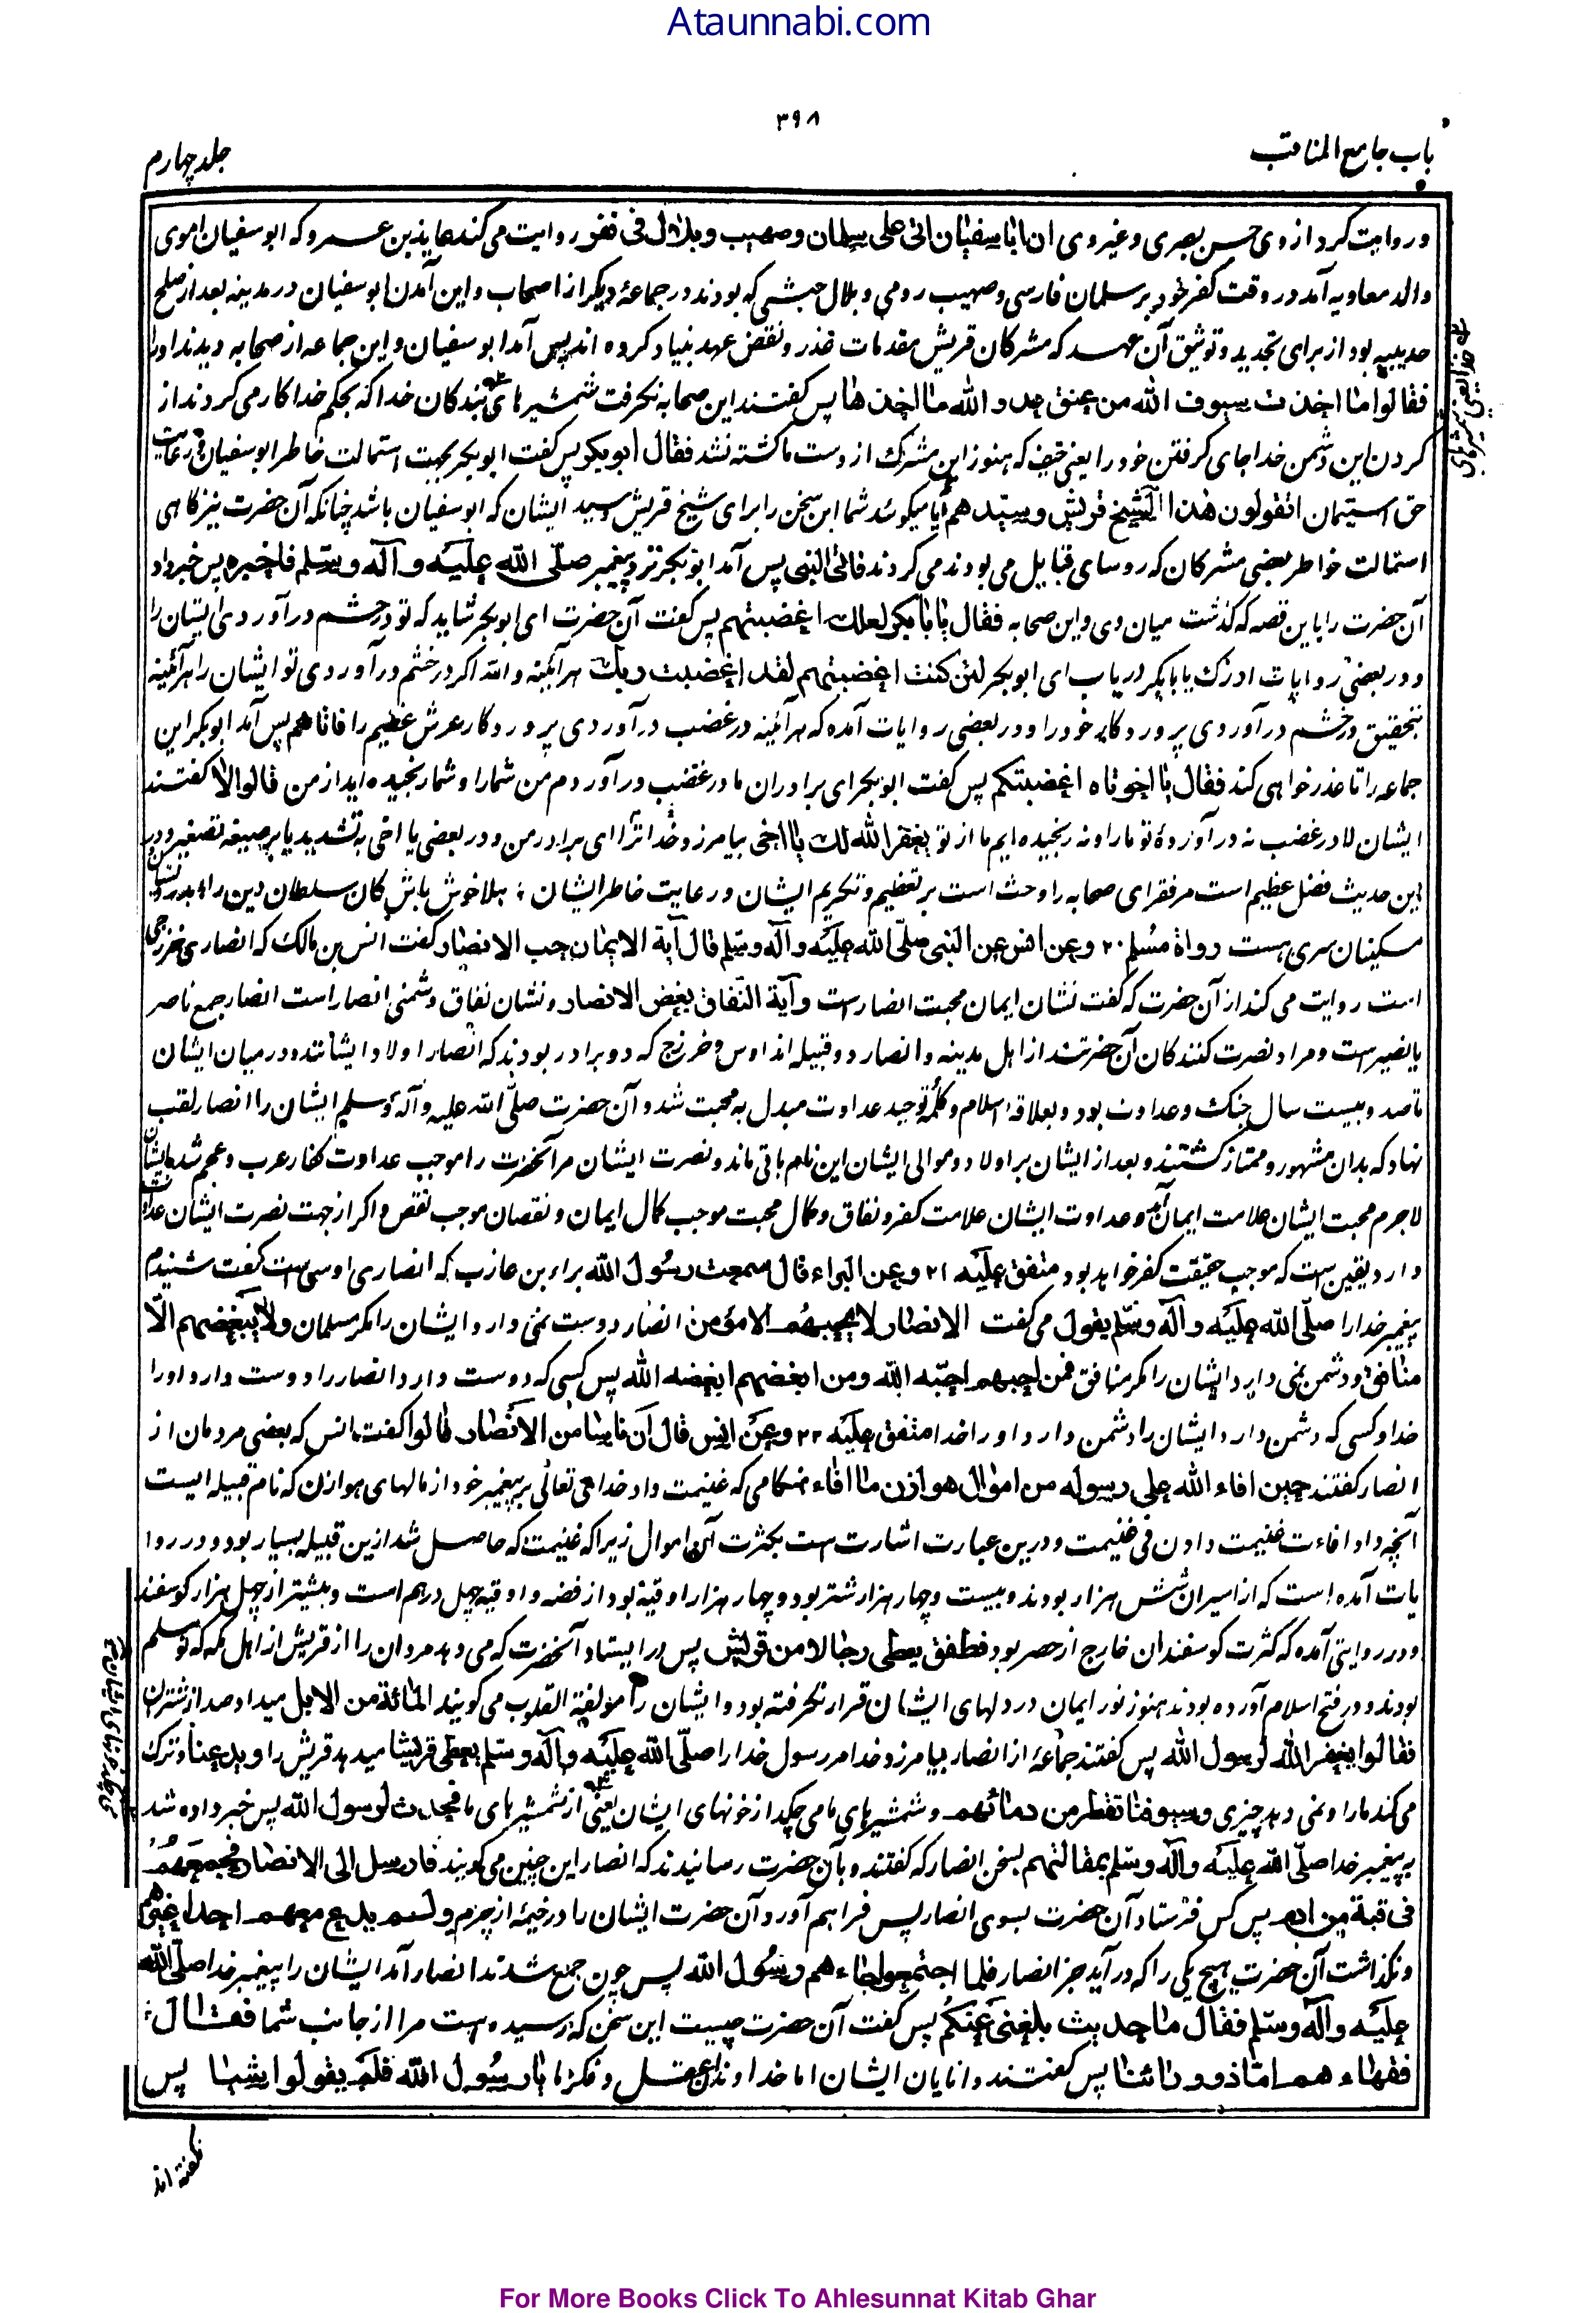 Ataunnabi.com
۳۹۸
باب جامع المناقب
جلد چهارم
و روایت کرد از وی حسن بصری و غیر وی ان ابا سفیان اتی علی سلمان و صهیب و بلال فی نفر روایت می کند عایذ بن عمرو که ابو سفیان اموی
والد معاویه آمد در وقت کفر خود بر سلمان فارسی و صهیب رومی و بلال حبشی که بودند در جماعۀ دیگر از اصحاب و این آمدن ابو سفیان در مدینه بعد از صلح
حدیبیه بود از برای تجدید و توثیق آن عهد که مشرکان قریش مقدمات غدر و نقض عهد بنیاد کرده اند پس آمد ابو سفیان و این جماعه از صحابه دیدند او را
فقالوا ما اخذت سیوف الله من عنق عدو الله ماخذها پس گفتند این صحابه نگرفت شمشیرهای بندگان خدا که بحکم خدا کار می کردند از
گردن این دشمن خدا جای گرفتن خود را یعنی حیف که هنوز این مشرک از دست ما کشته نشد فقال ابو بکر پس گفت ابو بکر بجهت استمالت خاطر ابو سفیان و رعایت
حق استیمان اتقولون هذا الشیخ قریش و سیدهم آیا میگوئید شما این سخن را برای شیخ قریش و سید ایشان که ابو سفیان باشد چنانکه آن حضرت نیز گاهی
استمالت خواطر بعضی مشرکان که روسای قبایل می بودند می کردند فاتی النبی پس آمد ابو بکر نزد پیغمبر صلی الله علیه و آله و سلم فاخبره پس خبر داد
آن حضرت را باین قصه که گذشت میان وی و این صحابه فقال یا ابا بکر لعلک اغضبتهم پس گفت آن حضرت ای ابو بکر شاید که تو در خشم در آوردی ایشان را
و در بعضی روایات ادرک یا ابا بکر دریاب ای ابو بکر لئن کنت اغضبتهم لقد اغضبت ربک هر آئینه والله اگر در خشم در آوردی تو ایشان را هر آئینه
بتحقیق در خشم در آوردی پروردگار خود را و در بعضی روایات آمده که هر آئینه در غضب در آوردی پروردگار عرش عظیم را فاتاهم پس آمد ابو بکر این
جماعه را تا عذر خواهی کند فقال یا اخوتاه اغضبتکم پس گفت ابو بکر ای برادران ما در غضب در آوردم من شما را و شما رنجیده اید از من قالوا لا گفتند
ایشان لا در غضب نه در آوردۀ تو ما را و نه رنجیده ایم ما از تو یغفر الله لک یا اخی بیامرزد خدا ترا ای برادر من و در بعضی یا اخی به تشدید یا بر صیغه تصغیر و در
این حدیث فضل عظیم است مر فقرای صحابه را و حث است بر تعظیم و تکریم ایشان و رعایت خاطر ایشان ؛ بلا خوش باش کان سلطان دین را ؛ بدرویشان و
مسکینان سری هست رواه مسلم ۲۰ و عن انس عن النبی صلی الله علیه و آله و سلم قال آیة الایمان حب الانصار گفت انس بن مالک که انصاری خزرجی
است روایت می کند از آن حضرت که گفت نشان ایمان محبت انصار است و آیة النفاق بغض الانصار و نشان نفاق دشمنی انصار است انصار جمع ناصر
یا نصیر است و مراد نصرت کنندگان آن حضرتند از اهل مدینه و انصار دو قبیله اند اوس و خزرج که دو برادر بودند که انصار اولاد ایشانند و در میان ایشان
تا صد و بیست سال جنگ و عداوت بود و بعلاقه اسلام و کلمۀ توحید عداوت مبدل به محبت شد و آن حضرت صلی الله علیه و آله و سلم ایشان را انصار لقب
نهاد که بدان مشهور و ممتاز گشتند و بعد از ایشان بر اولاد و موالی ایشان این نام باقی ماند و نصرت ایشان مر آنحضرت را موجب عداوت کفار عرب و عجم شد بایشان
لاجرم محبت ایشان علامت ایمان آمد و عداوت ایشان علامت کفر و نفاق و کمال محبت موجب کمال ایمان و نقصان موجب نقص و اگر از جهت نصرت ایشان عداوت
دارد یقین است که موجب حقیقت کفر خواهد بود متفق علیه ۲۱ و عن البراء قال سمعت رسول الله براء بن عازب که انصاری اوسی است گفت شنیدم
پیغمبر خدا را صلی الله علیه و آله و سلم یقول می گفت الانصار لا یحبهم الا مؤمن انصار دوست نمی دارد ایشان را مگر مسلمان و لا یبغضهم الا
منافق و دشمن نمی دارد ایشان را مگر منافق فمن احبهم احبه الله و من ابغضهم ابغضه الله پس کسی که دوست دارد انصار را دوست دارد او را
خدا و کسی که دشمن دارد ایشان را دشمن دارد او را خدا متفق علیه ۲۲ و عن انس قال ان ناسا من الانصار قالوا گفت انس که بعضی مردمان از
انصار گفتند حین افاء الله علی رسوله من اموال هوازن ما افاء هنگامی که غنیمت داد خدای تعالی بر پیغمبر خود از مالهای هوازن که نام قبیله ایست
آنچه داد افاءت غنیمت دادن فی غنیمت و درین عبارت اشارت است بکثرت آن اموال زیرا که غنیمت که حاصل شد ازین قبیله بسیار بود و در روا
یات آمده است که از اسیران شش هزار بودند و بیست و چهار هزار شتر بود و چهار هزار اوقیه بود از فضه و اوقیه چهل درهم است و بیشتر از چهل هزار گوسفند
و در روایتی آمده که کثرت گوسفندان خارج از حصر بود فطفق یعطی رجالا من قریش پس در ایستاد آنحضرت که می دهد مردان را از قریش از اهل مکه که نو مسلم
بودند و در فتح اسلام آورده بودند هنوز نور ایمان در دلهای ایشان قرار نگرفته بود و ایشان را مؤلفة القلوب می گویند المائة من الابل میداد صد از شتران
فقالوا یغفر الله لرسول الله پس گفتند جماعۀ از انصار بیامرزد خدا مر رسول خدا را صلی الله علیه و آله و سلم یعطی قریشا میدهد قریش را و یدعنا و ترک
می کند ما را و نمی دهد چیزی و سیوفنا تقطر من دمائهم و شمشیرهای ما می چکد از خونهای ایشان یعنی از شمشیرهای ما فحدث لرسول الله پس خبر داده شد
به پیغمبر خدا صلی الله علیه و آله و سلم بمقالتهم بسخن انصار که گفتند و بآن حضرت رسانیدند که انصار این چنین می گویند فارسل الی الانصار فجمعهم
فی قبة من ادم پس کس فرستاد آن حضرت بسوی انصار پس فراهم آورد آن حضرت ایشان را در خیمۀ از چرم و لم یدع معهم احدا غیرهم
و نگذاشت آن حضرت هیچ یکی را که در آید جز انصار فلما اجتمعوا جاءهم رسول الله پس چون جمع شدند انصار آمد ایشان را پیغمبر خدا صلی الله
علیه و آله و سلم فقال ما حدیث بلغنی عنکم پس گفت آن حضرت چیست این سخن که رسیده است مرا از جانب شما فقال
فقهاءهم اما ذوو رائنا پس گفتند دانایان ایشان اما خداوندان عقل و فکر ما یا رسول الله فلم یقولوا شیئا پس
نگفته اند
For More Books Click To Ahlesunnat Kitab Ghar